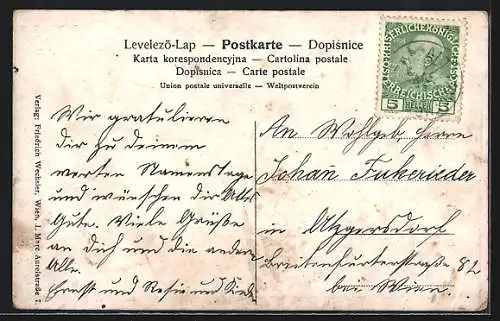 Levelező-Lap — Postkarte — Dopiśnice
Karta korespondencyjna — Cartolina postale
Dopisnica — Carte postale
Union postale universelle — Weltpostverein
KAISERLICHE KÖNIGLICHE
ÖSTERREICHISCHE
5 HELLER 5
Verlag: Friedrich Wechsler, Wien, I. Marc Aurelstraße 7.
Wir gratulieren
dir zu deinem
werten Namenstage
und wünschen dir Alles
Gute. Viele Grüße
an dich und die andern
Alle.
Ernst und Resie und Kind
An Wohlgeb. Herrn
Johann
in
Atzgersdorf
Breitenfurterstraße 82
bei Wien.